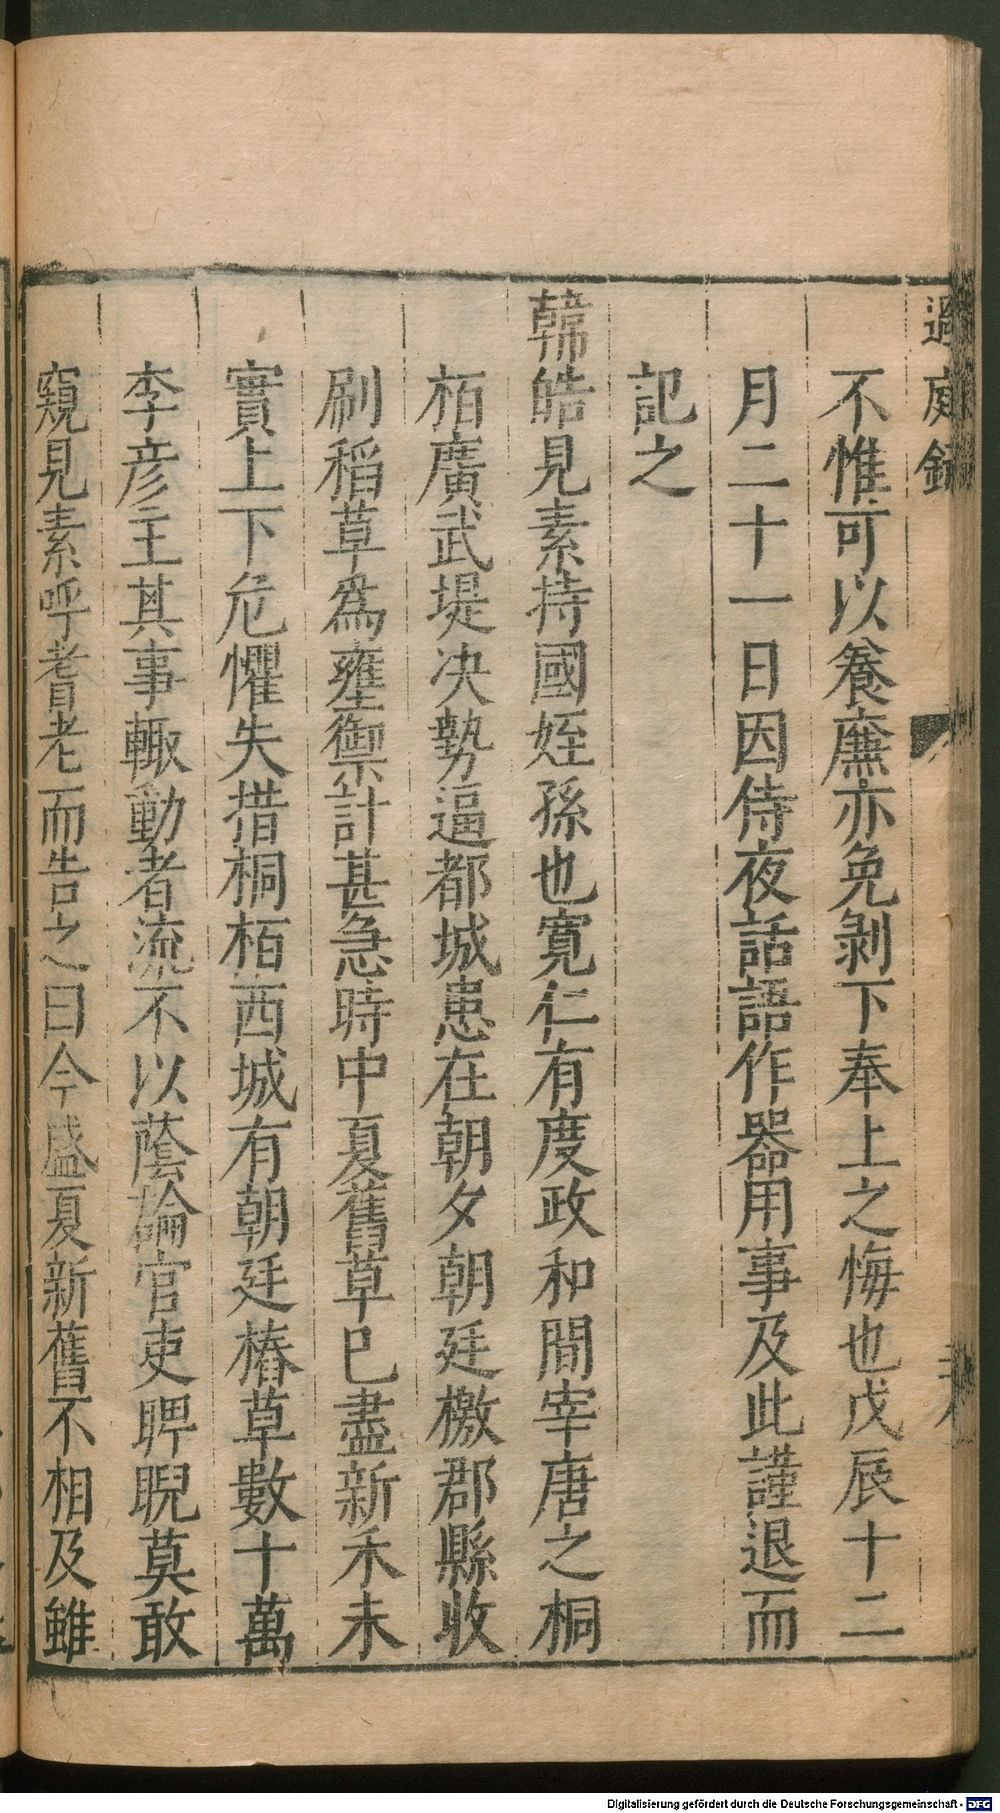 過庭錄
不惟可以養廉亦免剝下奉上之悔也戊辰十二
月二十一日因侍夜話語作器用事及此謹退而
記之
韓皓見素持國姪孫也寬仁有度政和間宰唐之桐
栢廣武堤决勢逼都城患在朝夕朝廷檄郡縣收
刷稻草爲壅禦計甚急時中夏舊草巳盡新禾未
實上下危懼失措桐栢西城有朝廷樁草數十萬
李彦主其事輙動者流不以蔭論官吏睥睨莫敢
窺見素呼耆老而告之曰今盛夏新舊不相及雖
Digitalisierung gefördert durch die Deutsche Forschungsgemeinschaft - DFG